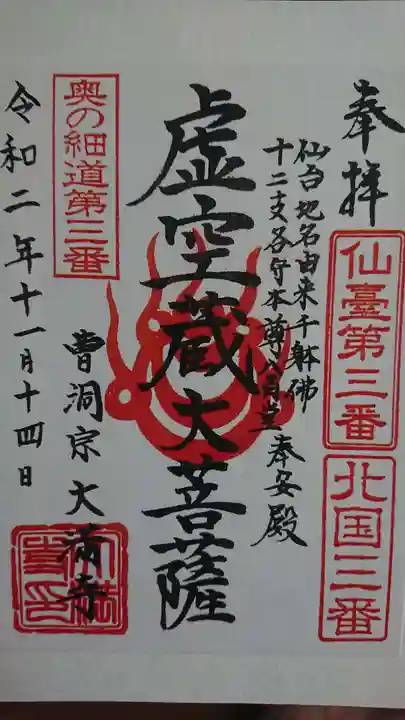 奉拝
仙臺第三番
北国三番
仙台地名由来千躰佛
十二支各守本尊八百立奉安殿
虚空蔵大菩薩
奥の細道第三番
曹洞宗大満寺
令和二年十一月十四日